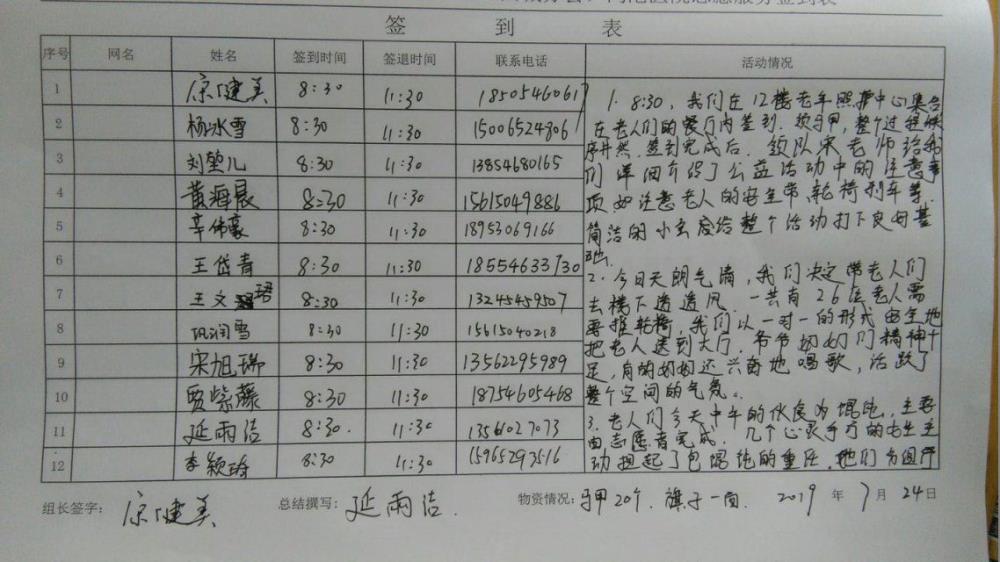 签到表
序号 网名 姓名 签到时间 签退时间 联系电话 活动情况
1 8:30 11:30 1850546061
2 杨冰雪 8:30 11:30 15006524806
3 刘堃儿 8:30 11:30 13854680165
4 黄 晨 8:30 11:30 15615049886
5 辛伟豪 8:30 11:30 18953069166
6 王岱青 8:30 11:30 18554633730
7 王文珺 8:30 11:30 13245459507
8 巩润雪 8:30 11:30 15615040218
9 宋旭瑞 8:30 11:30 13562295989
10 贾紫藤 8:30 11:30 18754605468
11 延雨洁 8:30. 11:30 1356027073
12 李颖琦 8:30 11:30 15965293516
1. 8:30，我们在12楼老年照护中心集合
在老人们的餐厅内签到、领马甲，整个过程秩
序井然。签到完成后，领队宋老师给我
们详细介绍了公益活动中的注意事
项，如注意老人的安全带、轮椅刹车等.
简洁的小 给整个活动打下良好基
础.
2. 今日天朗气清，我们决定带老人们
去楼下透透风. 一共有26位老人需
要推轮椅，我们以一对一的形式安全地
把老人送到大厅. 爷爷奶奶们精神十
足，有的奶奶还兴奋地唱歌，活跃了
整个空间的气氛。
3. 老人们今天中午的伙食为馄饨，主要
由志愿者完成. 几个心灵手巧的女生主
动担起了包馄饨的重任，她们
组长签字： 总结撰写：延雨洁. 物资情况：马甲20个. 旗子一面. 2019年7月24日